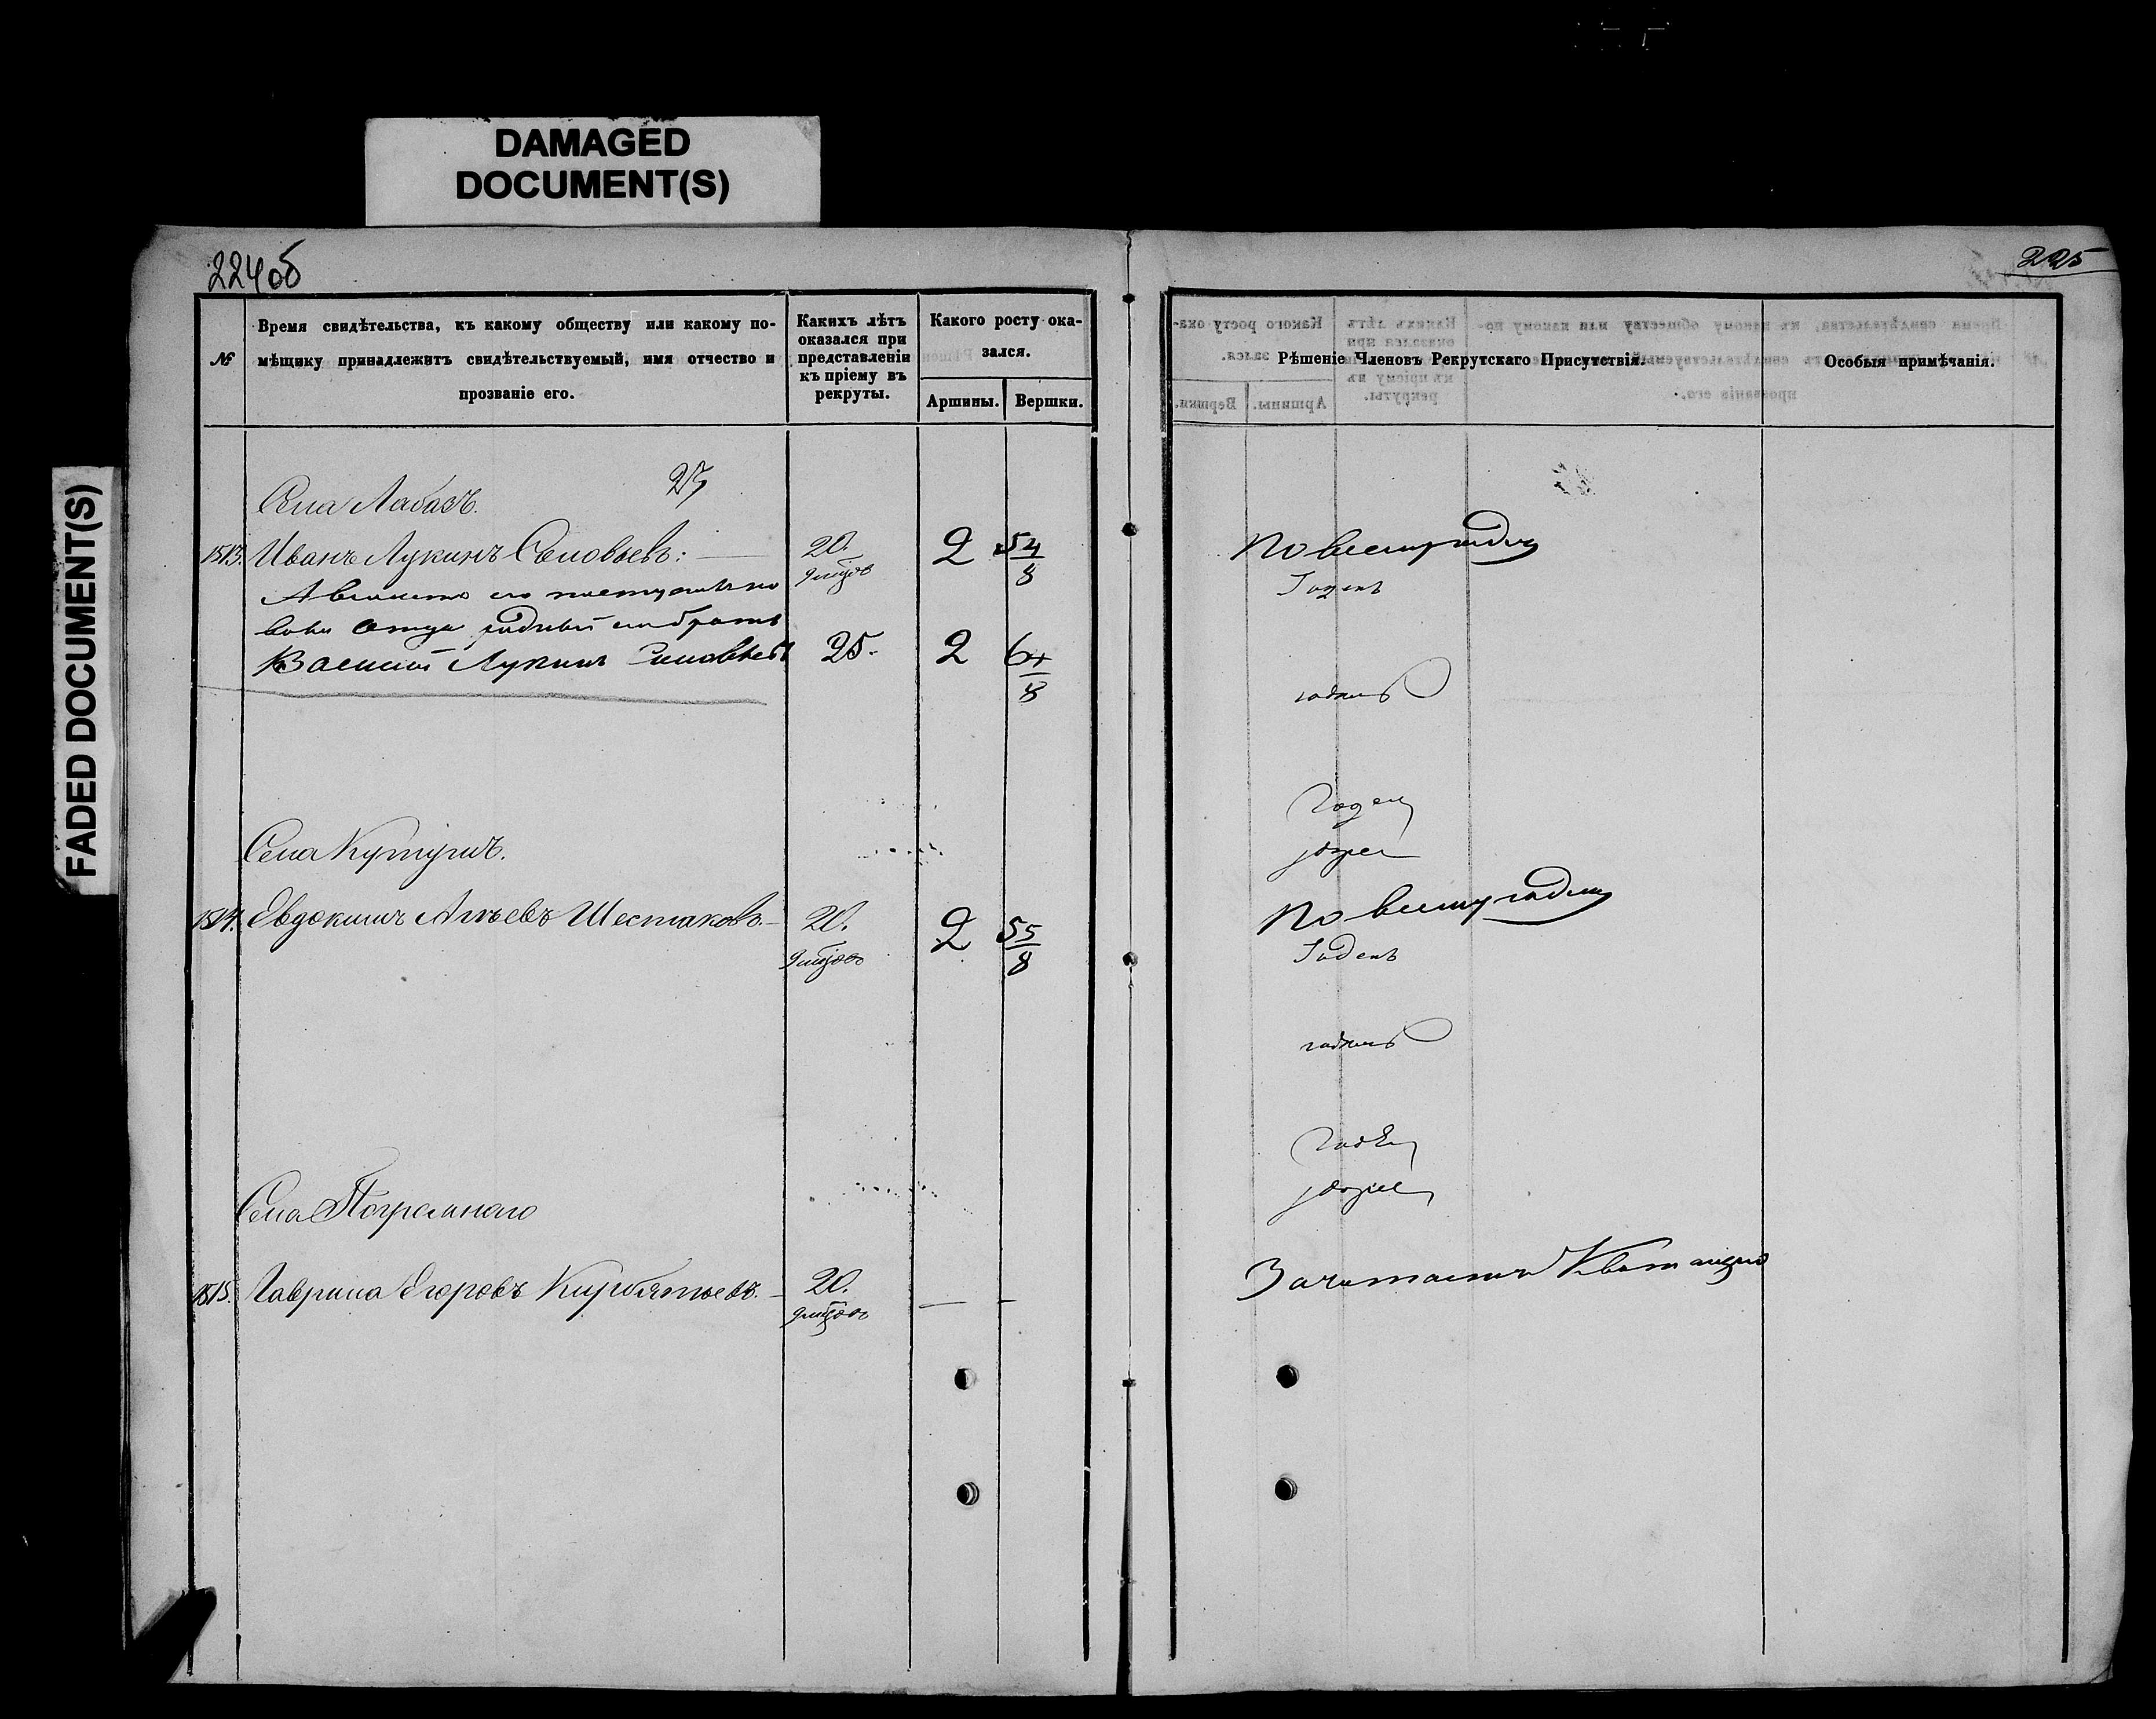 DAMAGED
DOCUMENT(S)
FADED DOCUMENT(S)
224об
№
Время свидѣтельства, къ какому обществу или какому по-
мѣщику принадлежитъ свидѣтельствуемый, имя отчество и
прозваніе его.
Какихъ лѣтъ
оказался при
представленіи
къ пріему въ
рекруты.
Какого росту ока-
зался.
Аршины. Вершки.
Села Лабазъ.
1513. Иванъ Лукинъ Соловьевъ: 20. 2 5 4/8
А вмѣсто его поступилъ по
воли отца родной его братъ
Василій Лукинъ Соловьевъ 25. 2 6 4/8
Села Кутуши.
1514. Евдокимъ Шестаковъ 20. 2 5 5/8
Села Погромнаго
1515. Гаврила Егоровъ 20. — —
225
Рѣшеніе Членовъ Рекрутскаго Присутствія.
Особыя примѣчанія.
По всему годенъ
Годенъ
годенъ
Годен
По всему годенъ
Годенъ
годенъ
Годен
Зачитается Квитанція